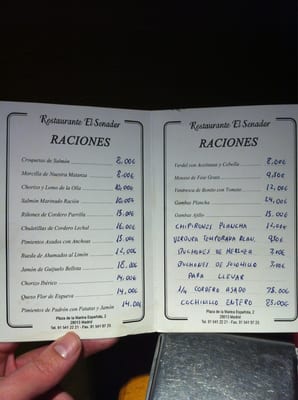 Restaurante El Senador
RACIONES
Croquetas de Salmón 8,00€
Morcilla de Nuestra Matanza 8,00€
Chorizo y Lomo de la Olla 10,00€
Salmón Marinado Ración 10,00€
Riñones de Cordero Parrilla 15,00€
Chuletillas de Cordero Lechal 16,00€
Pimientos Asados con Anchoas 15,00€
Rueda de Ahumados al Limón 12,00€
Jamón de Guijuelo Bellota 18,00€
Chorizo Ibérico 14,00€
Queso Flor de Esgueva 14,00€
Pimientos de Padrón con Patatas y Jamón 14,00€
Plaza de la Marina Española, 2
28013 Madrid
Tel. 91 541 22 21 - Fax. 91 541 97 23
Restaurante El Senador
RACIONES
Verdel con Aceitunas y Cebolla 8,00€
Mousse de Foie Grass
Ventresca de Bonito con Tomate 12,00€
Gambas Plancha
Gambas Ajillo 15,00€
CHIPIRONES PLANCHA
VERDURA TEMPORADA PLAN.
DUCHONES DE MERLUZA
DUCHONES DE SOLOMILLO 7,00€
PARA LLEVAR
1/4 CORDERO ASADO 75,00€
COCHINILLO ENTERO
Plaza de la Marina Española, 2
28013 Madrid
Tel. 91 541 22 21 - Fax. 91 541 97 23